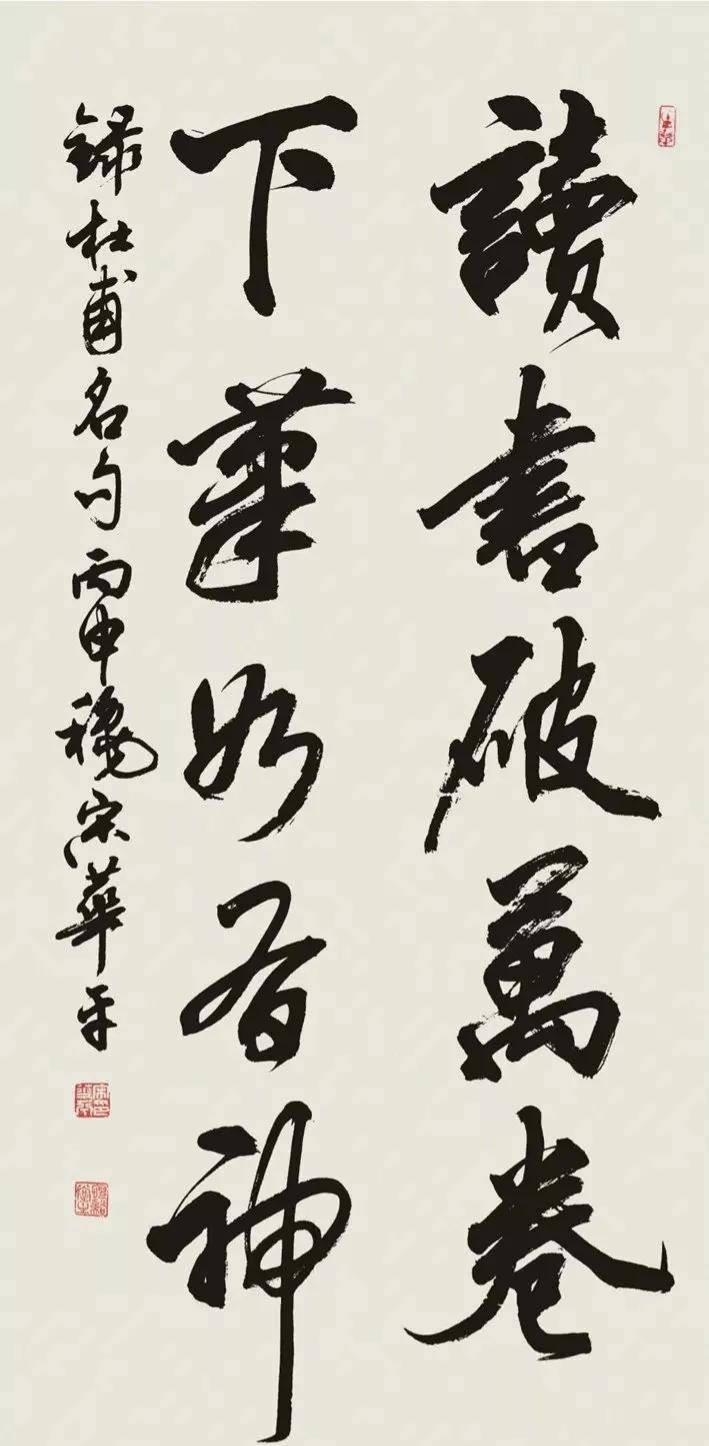 讀書破萬卷
下筆如有神
錄杜甫名句丙申穐宋華平